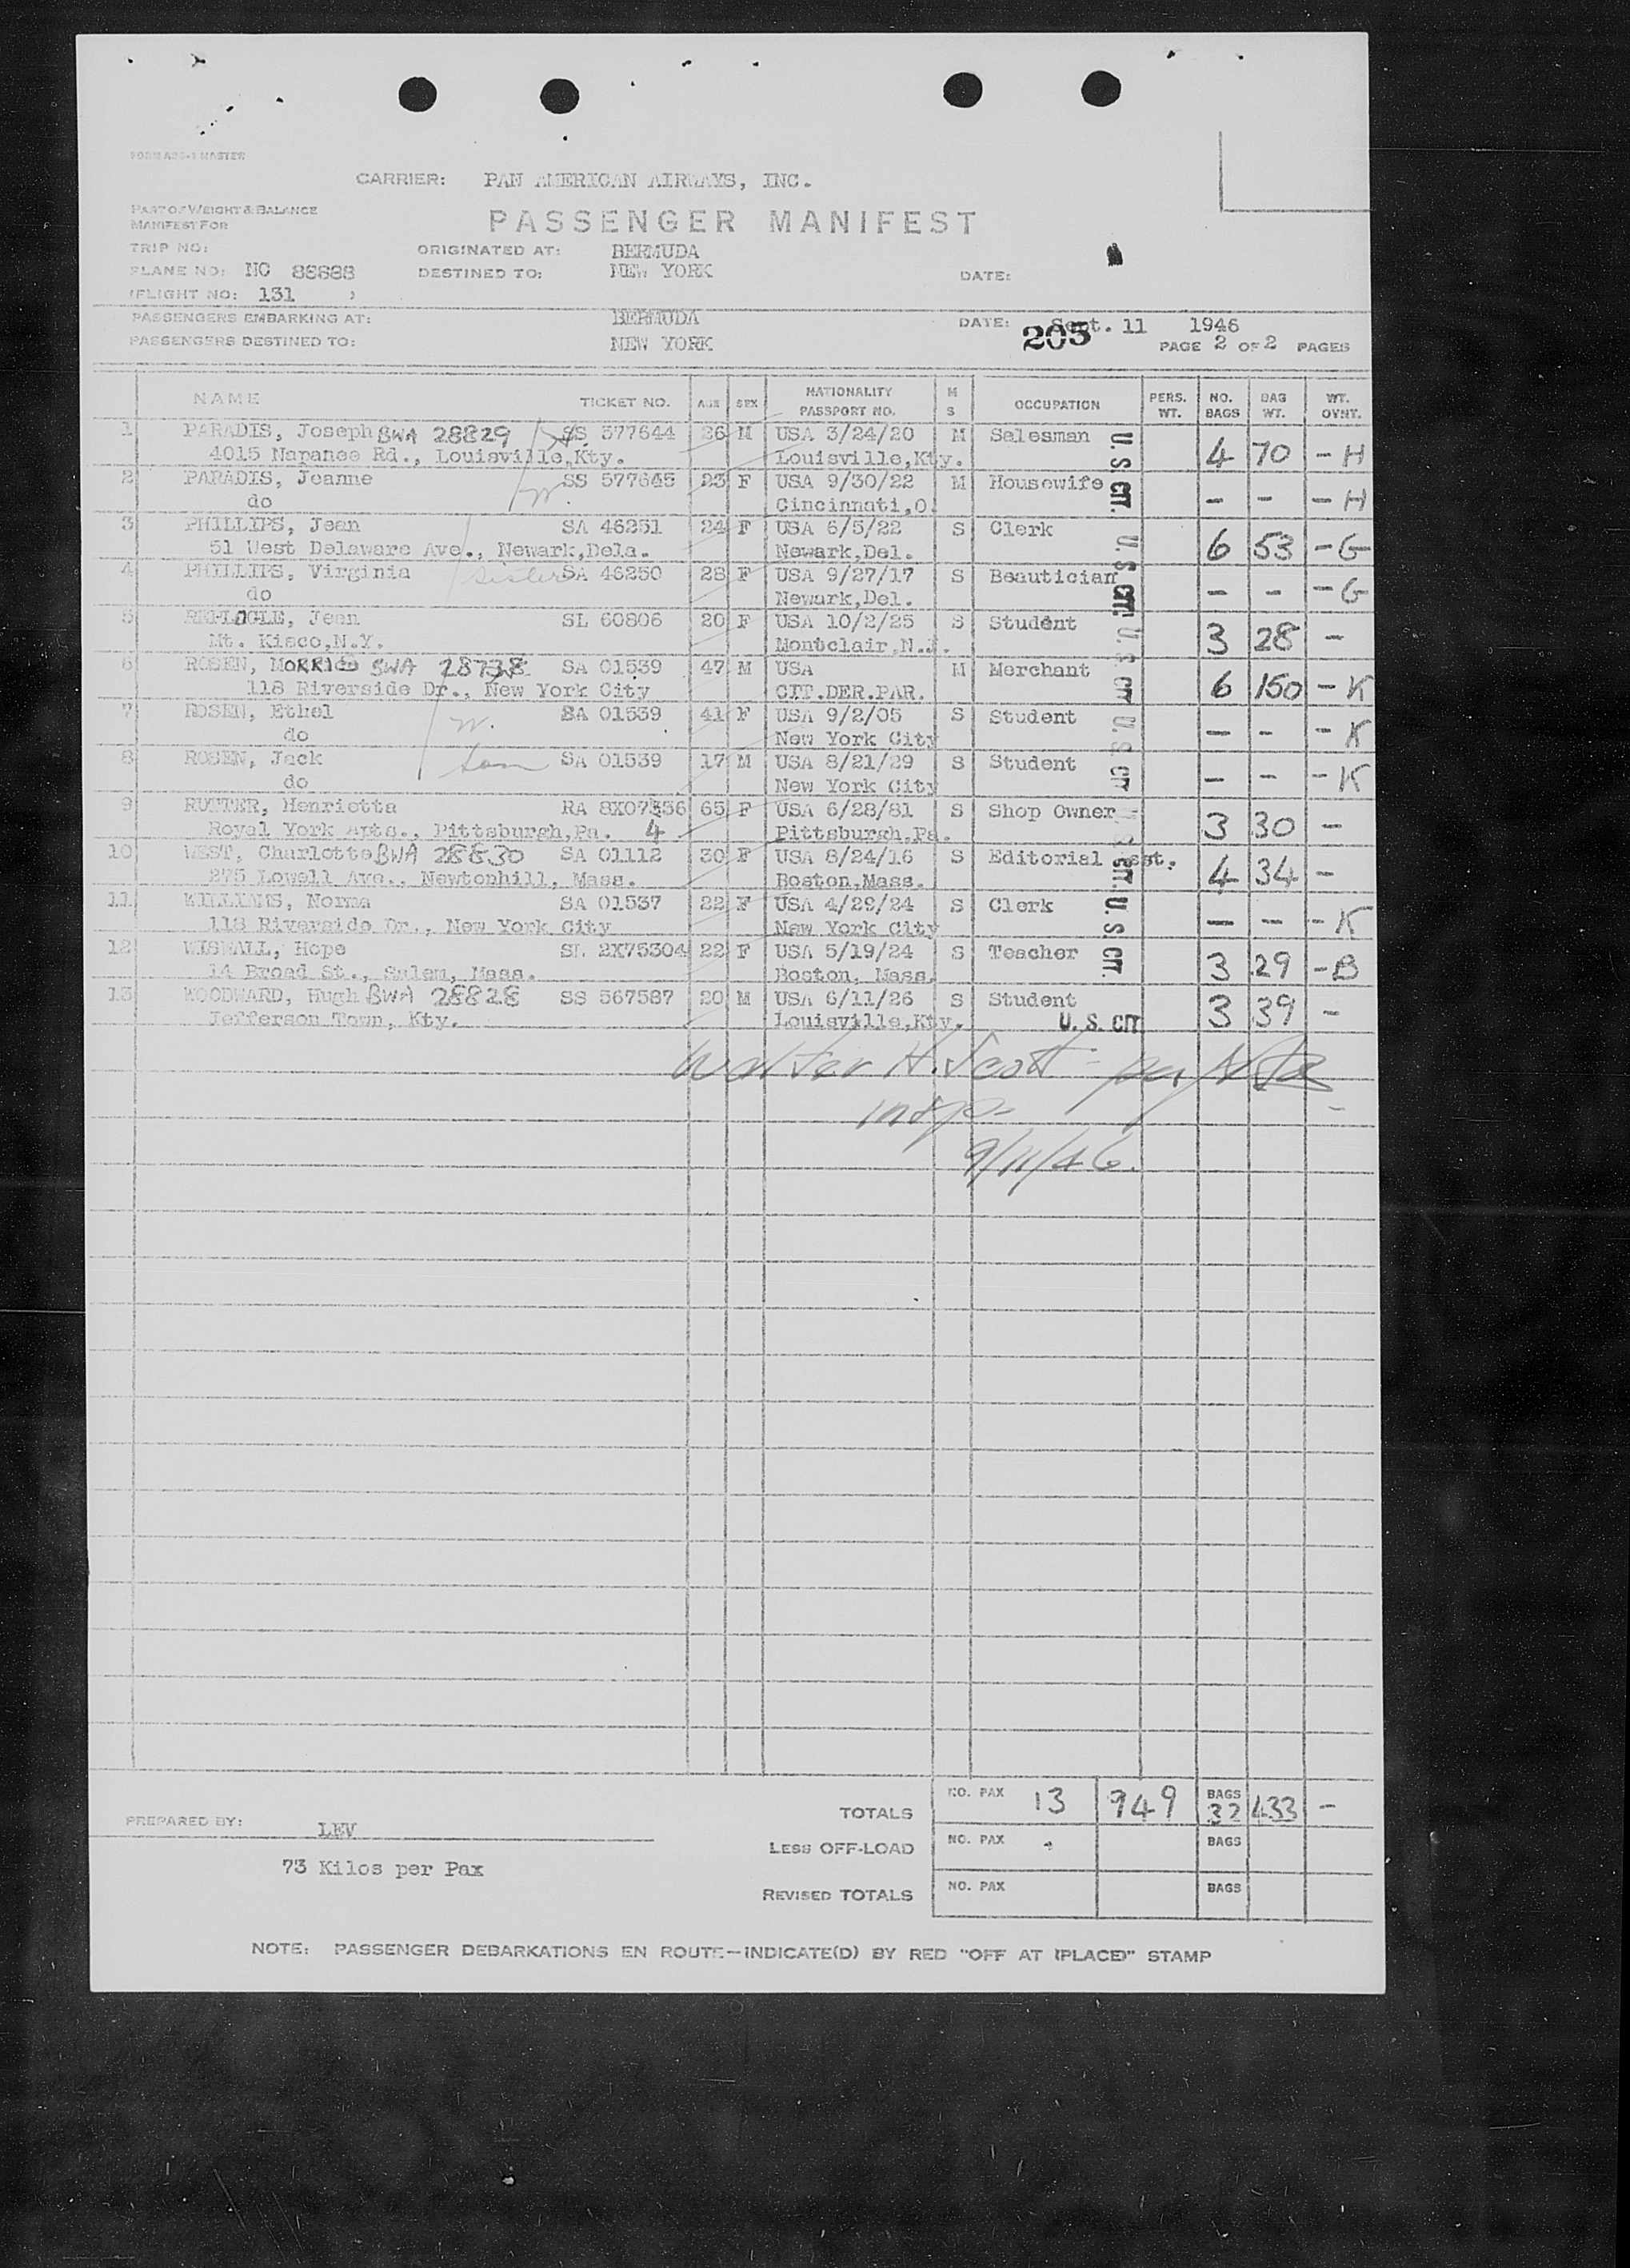 FORM ABS-1 MASTER
CARRIER: PAN AMERICAN AIRWAYS, INC.
PART OF WEIGHT & BALANCE
MANIFEST FOR
PASSENGER MANIFEST
TRIP NO: ORIGINATED AT: BERMUDA
PLANE NO: NC 88688 DESTINED TO: NEW YORK DATE:
(FLIGHT NO: 131 )
PASSENGERS EMBARKING AT: BERMUDA DATE: Sept. 11 1946
203
PASSENGERS DESTINED TO: NEW YORK PAGE 2 OF 2 PAGES
NAME TICKET NO. AGE SEX NATIONALITY PASSPORT NO. M S OCCUPATION PERS. WT. NO. BAGS BAG WT. WT. OVNT.
1 PARADIS, Joseph BWA 28829 H. SS 577644 26 M USA 3/24/20 M Salesman U. S. CIT. 4 70 - H
4015 Napanee Rd., Louisville, Kty. Louisville,Kty.
2 PARADIS, Jeanne W. SS 577645 23 F USA 9/30/22 M Housewife - - - H
do Cincinnati,O.
3 PHILLIPS, Jean SA 46251 24 F USA 6/5/22 S Clerk U. S. CIT. 6 53 - G
51 West Delaware Ave., Newark,Dela. Newark,Del.
4 PHILLIPS, Virginia sister SA 46250 28 F USA 9/27/17 S Beautician - - - G
do Newark,Del.
5 REPLOGLE, Jean SL 60806 20 F USA 10/2/25 S Student U. S. CIT 3 28 -
Mt. Kisco,N.Y. Montclair,N.J.
6 ROSEN, MORRIS BWA 28738 SA 01539 47 M USA M Merchant 6 150 - K
118 Riverside Dr., New York City CIT.DER.PAR.
7 ROSEN, Ethel W. SA 01539 41 F USA 9/2/05 S Student U. S. CIT - - - K
do New York City
8 ROSEN, Jack son SA 01539 17 M USA 8/21/29 S Student - - - K
do New York City
9 RUTTER, Henrietta RA 8X07356 65 F USA 6/28/81 S Shop Owner U. S. CIT. 3 30 -
Royal York Apts., Pittsburgh,Pa. 4 Pittsburgh,Pa.
10 WEST, Charlotte BWA 28830 SA 01112 30 F USA 8/24/16 S Editorial Asst. 4 34 -
275 Lowell Ave., Newtonhill, Mass. Boston,Mass.
11 WILLIAMS, Norma SA 01537 22 F USA 4/29/24 S Clerk U. S. CIT. - - - K
118 Riverside Dr., New York City New York City
12 WISWALL, Hope SL 2X75304 22 F USA 5/19/24 S Teacher 3 29 - B
14 Broad St., Salem, Mass. Boston, Mass.
13 WOODWARD, Hugh BWA 28828 SS 567587 20 M USA 6/11/26 S Student 3 39 -
Jefferson Town, Kty. Louisville,Kty. U. S. CIT
Walter H. Scott - per
insp-
9/11/46.
TOTALS NO. PAX 13 949 BAGS 32 433 -
PREPARED BY: LEV
LESS OFF-LOAD NO. PAX BAGS
73 Kilos per Pax
REVISED TOTALS NO. PAX BAGS
NOTE: PASSENGER DEBARKATIONS EN ROUTE—INDICATE(D) BY RED "OFF AT (PLACE)" STAMP